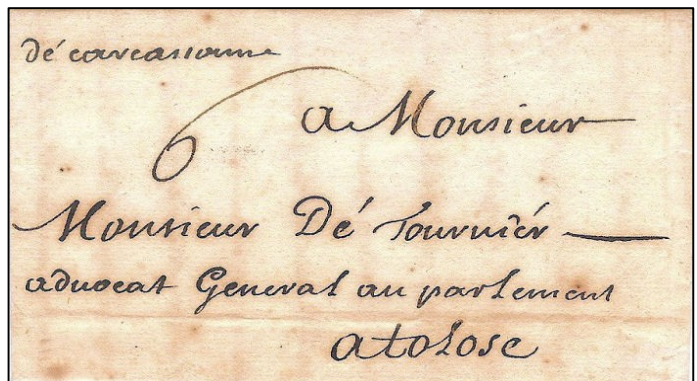 dé carcassonne
6
a Monsieur
Monsieur Dé Tourniér
advocat General au parlement
a tolose